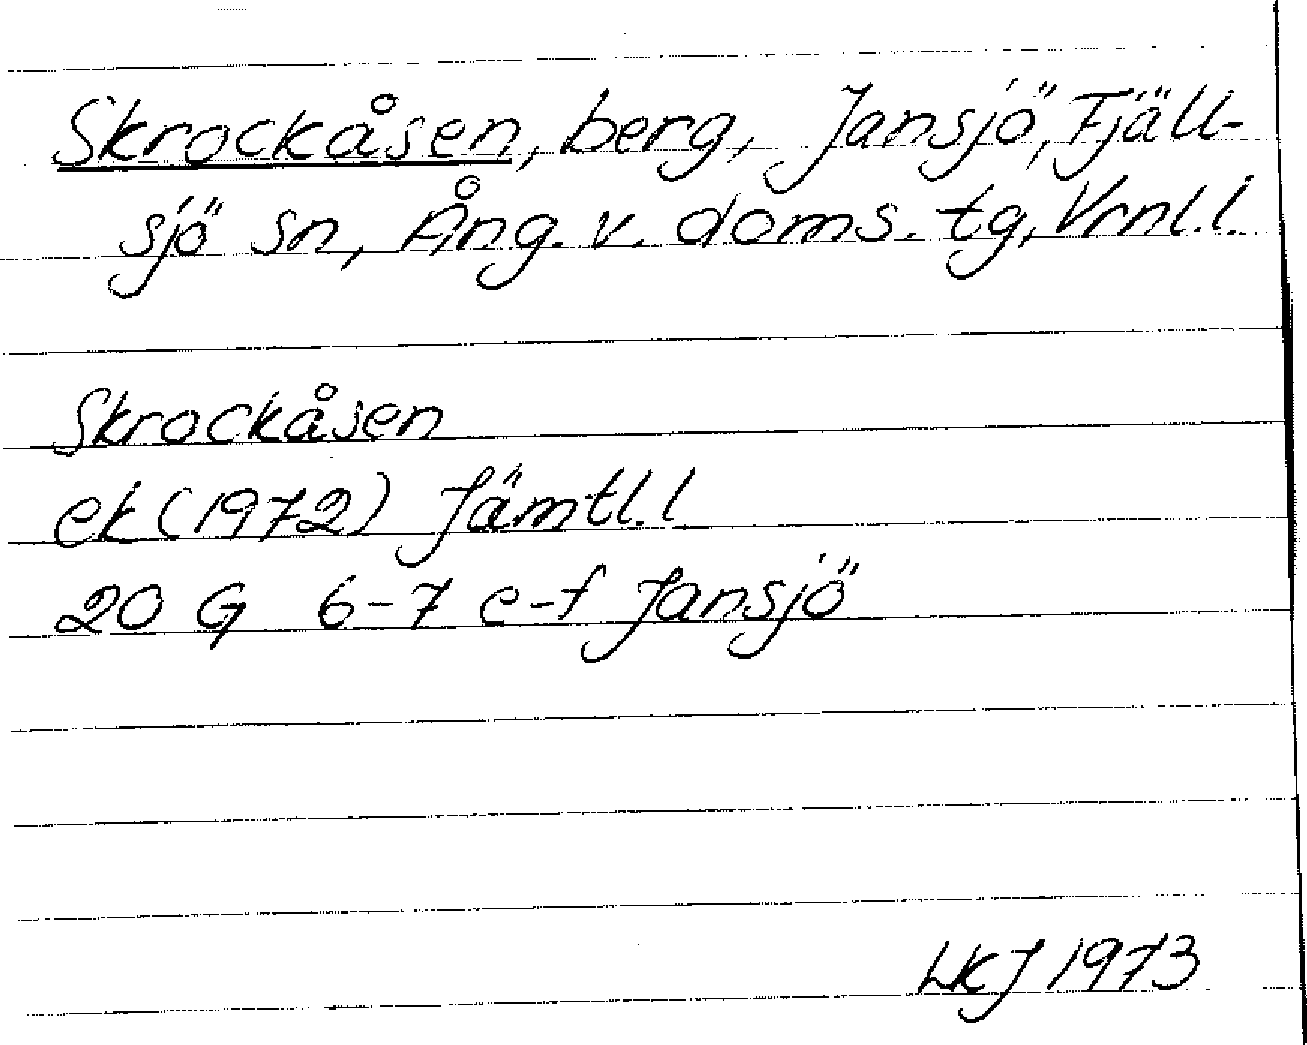 Skrockåsen, berg, Jansjö, Fjäll-
sjö sn, Ång. v. doms. tg, Vrnl.l.
Skrockåsen
ek (1972) Jämtl.l
20 G 6-7 e-f Jansjö
LKJ 1973